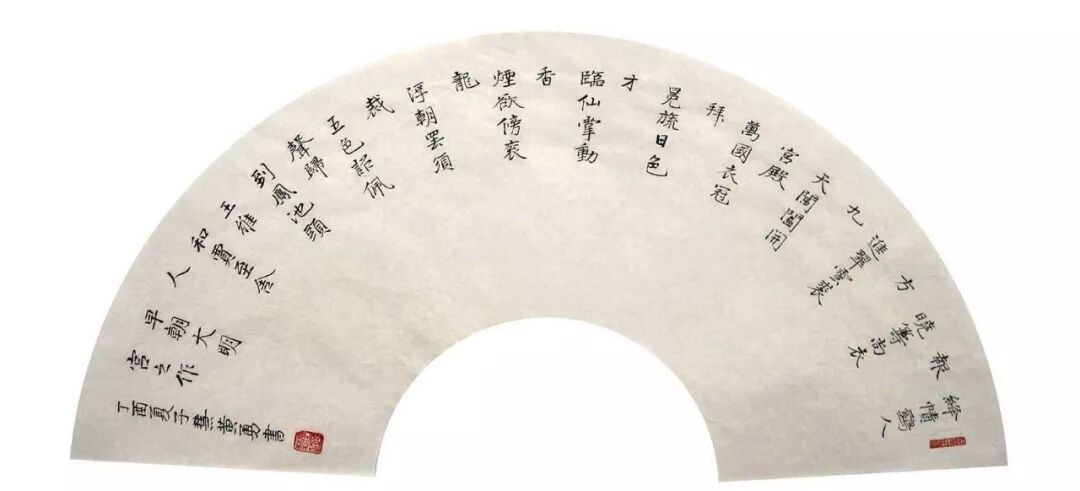 絳幘鷄人
報
曉籌尚衣
方
進翠雲裘
九
天閶闔開
宮殿
萬國衣冠
拜
冕旒日色
才
臨仙掌動
香
煙欲傍袞
龍
浮朝罷須
裁
五色詔佩
聲歸
到鳳池頭
王維
和賈至舍
人
早朝大明
宮之作
丁酉夏子黃勇書